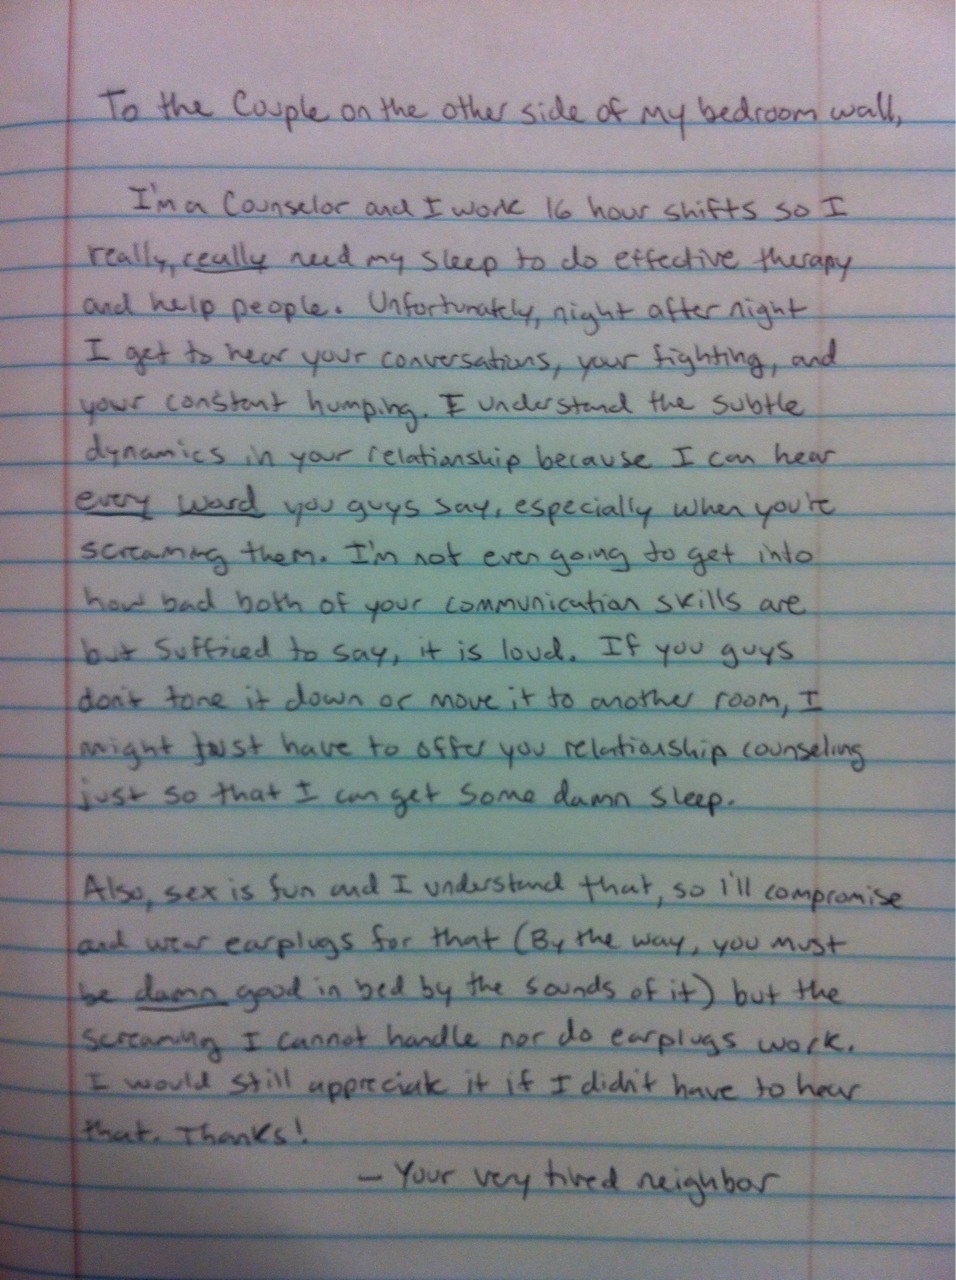 To the Couple on the other side of my bedroom wall,
I'm a Counselor and I work 16 hour shifts so I
really, really need my sleep to do effective therapy
and help people. Unfortunately, night after night
I get to hear your conversations, your fighting, and
your constant humping. I understand the subtle
dynamics in your relationship because I can hear
every word you guys say, especially when you're
screaming them. I'm not even going to get into
how bad both of your communication skills are
but sufficed to say, it is loud. If you guys
don't tone it down or move it to another room, I
might just have to offer you relationship counseling
just so that I can get some damn sleep.
Also, sex is fun and I understand that, so i'll compromise
and wear earplugs for that (By the way, you must
be damn good in bed by the sounds of it) but the
screaming I cannot handle nor do earplugs work.
I would still appreciate it if I didn't have to hear
that. Thanks!
– Your very tired neighbor